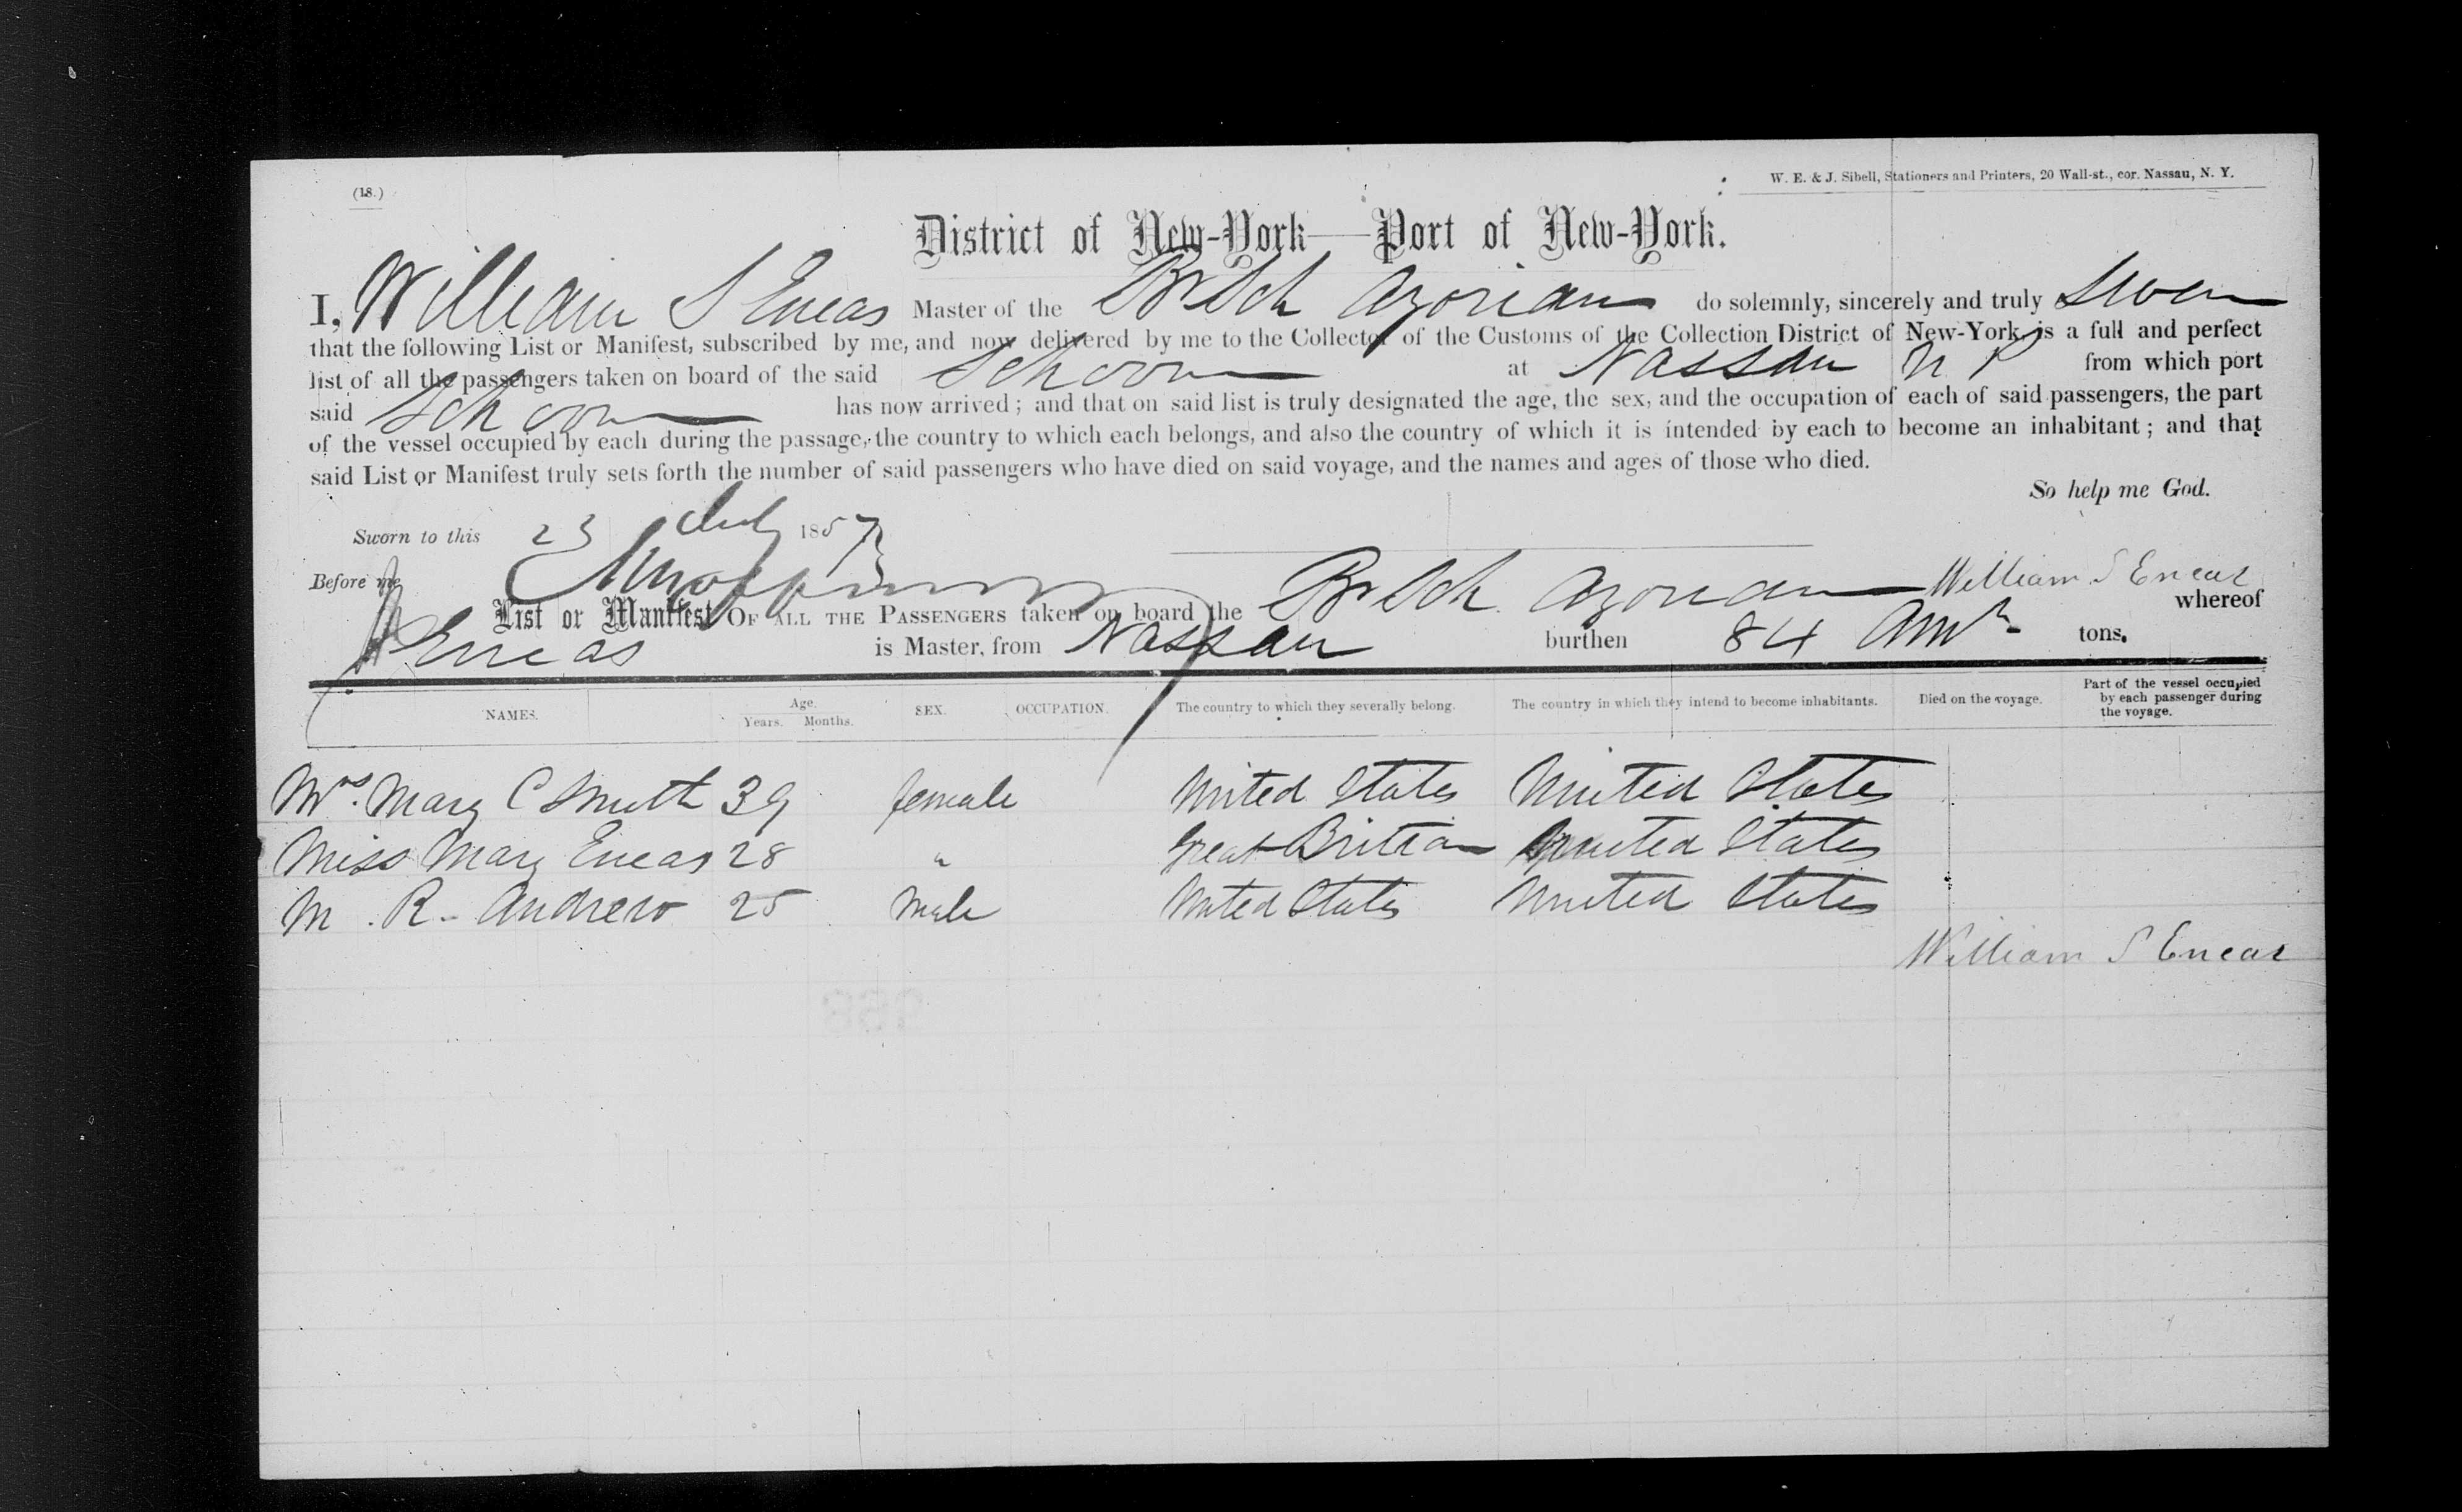 (18.)
W. E. & J. Sibell, Stationers and Printers, 20 Wall-st., cor. Nassau, N. Y.
District of New-York—Port of New-York.
I, William S Eneas Master of the Br Sch Azorian do solemnly, sincerely and truly swear
that the following List or Manifest, subscribed by me, and now delivered by me to the Collector of the Customs of the Collection District of New-York, is a full and perfect
list of all the passengers taken on board of the said Schoon at Nassau N P from which port
said Schoon has now arrived; and that on said list is truly designated the age, the sex, and the occupation of each of said passengers, the part
of the vessel occupied by each during the passage, the country to which each belongs, and also the country of which it is intended by each to become an inhabitant; and that
said List or Manifest truly sets forth the number of said passengers who have died on said voyage, and the names and ages of those who died.
So help me God.
Sworn to this 23 July 1857
Before me William S Eneas
List or Manifest OF ALL THE PASSENGERS taken on board the Br Sch Azorian whereof
Eneas is Master, from Nassau burthen 84 tons.
NAMES. Age. Years. Months. SEX. OCCUPATION. The country to which they severally belong. The country in which they intend to become inhabitants. Died on the voyage. Part of the vessel occupied by each passenger during the voyage.
Mrs. Mary C Smith 39 female United States United States
Miss Mary Eneas 28 " Great Britian United States
M. R. Andrew 25 Male United States United States
William S Eneas